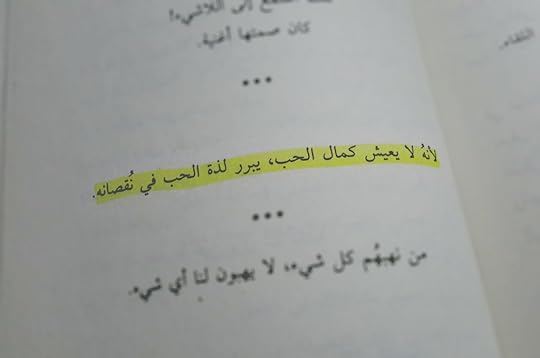 إلى اللاشيء!
كان صمتها أغنية.
•••
لأنهُ لا يعيش كمال الحب، يبرر لذة الحب في نُقصانه.
•••
من نهبهُم كل شيء، لا يهبون لنا أي شيء.